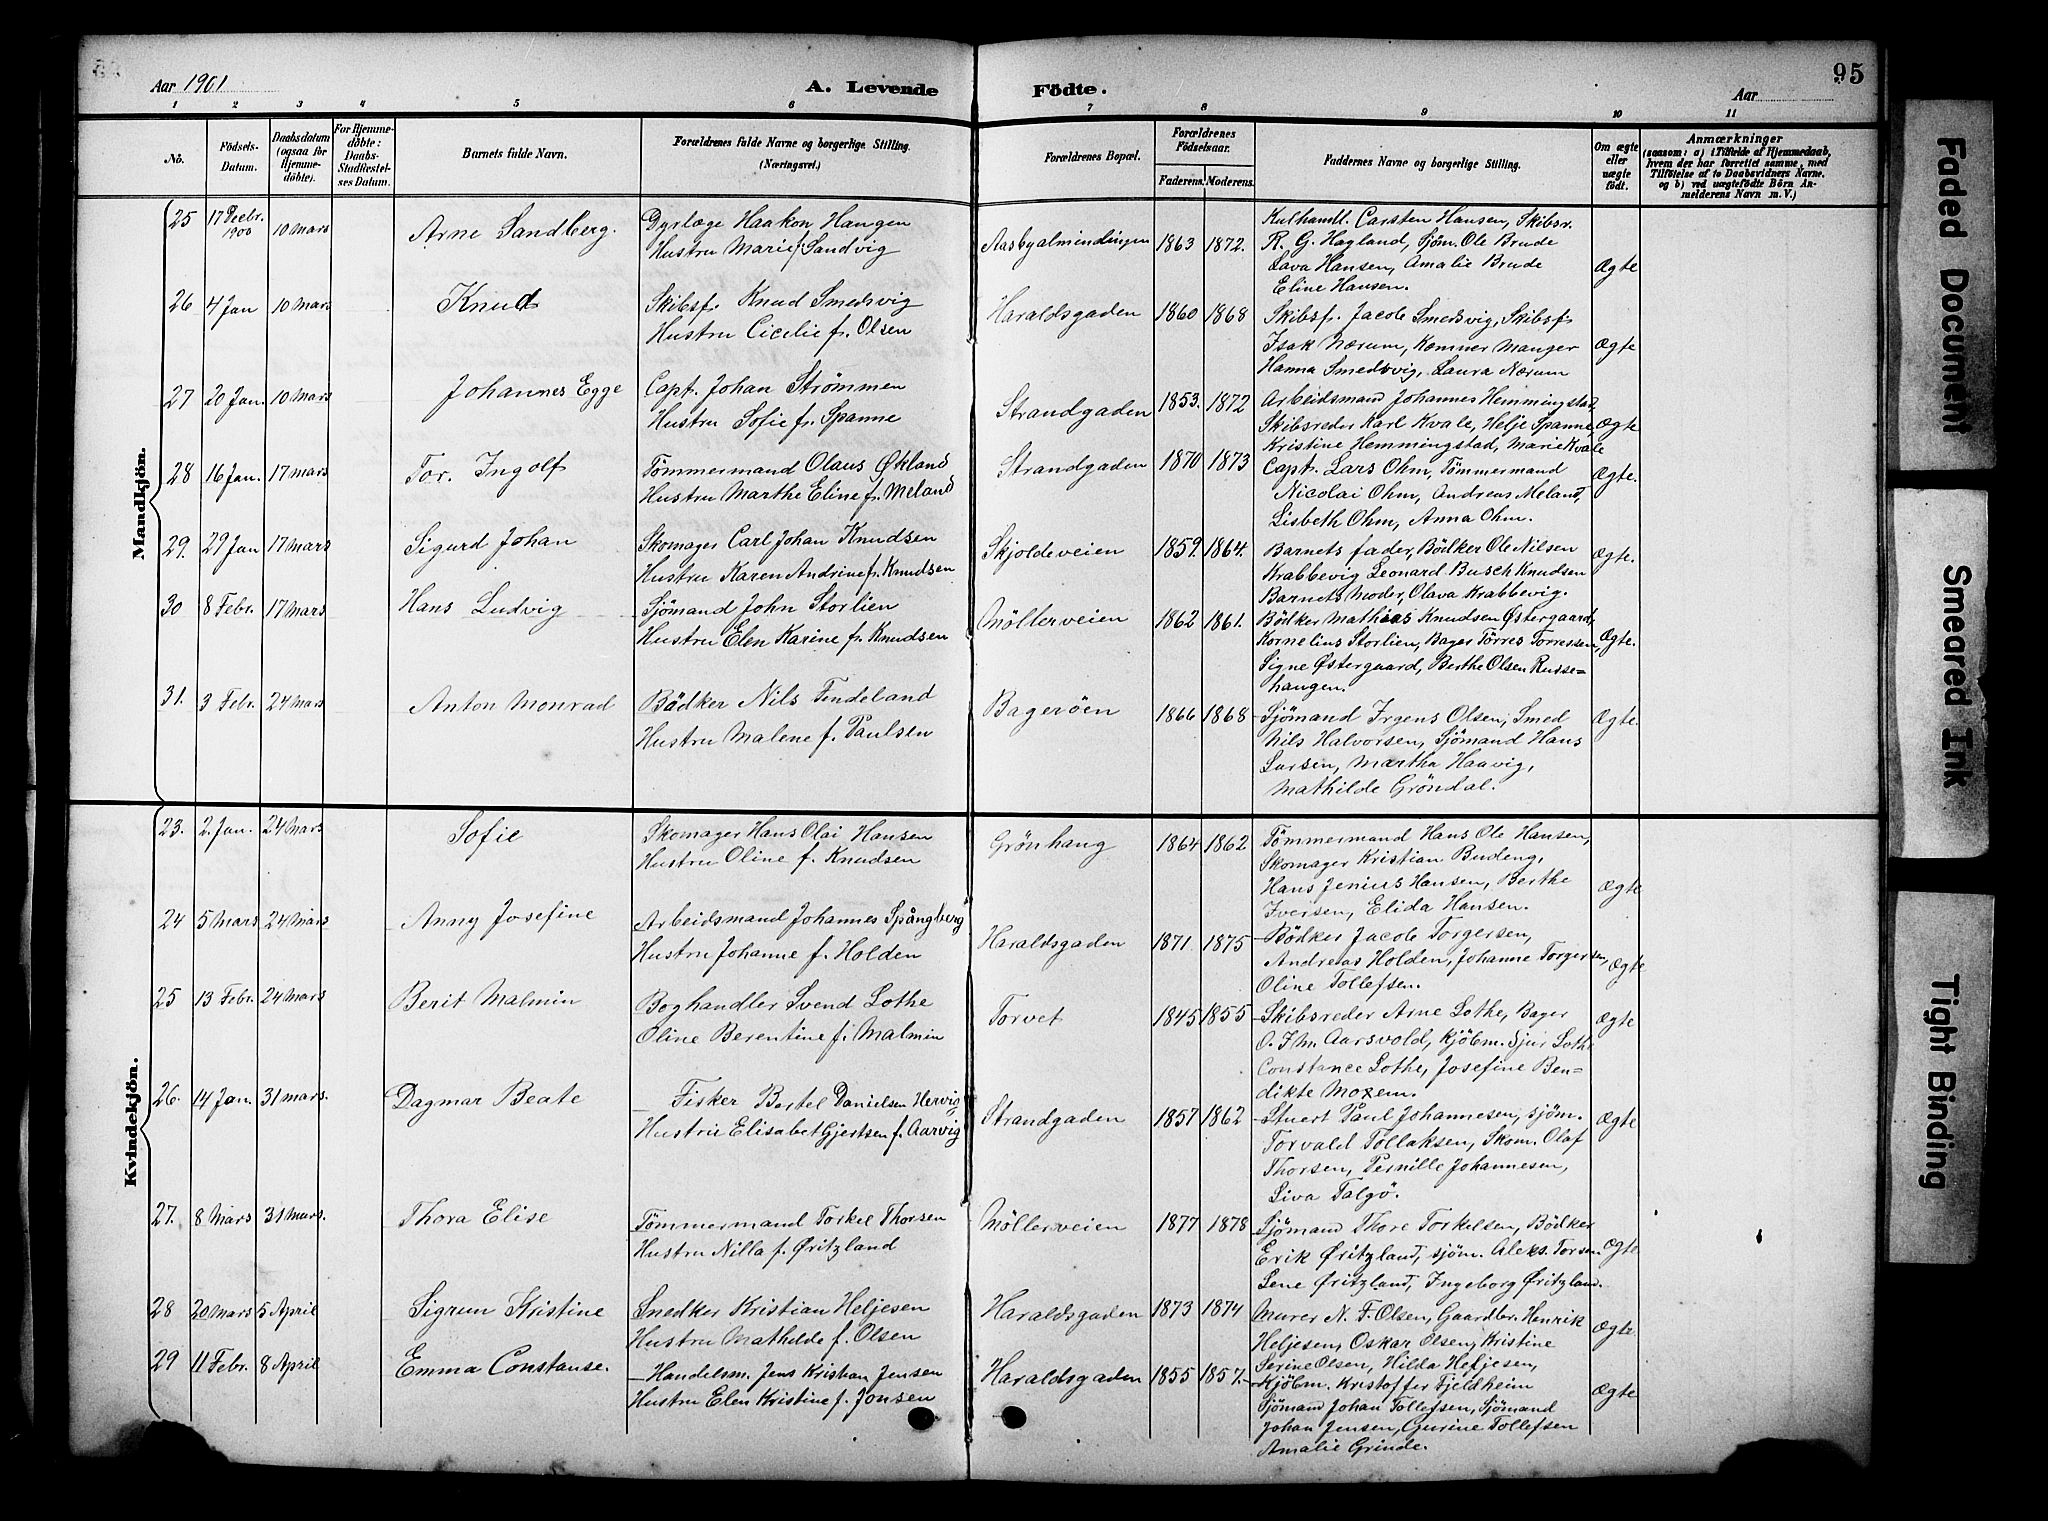 Aar 1901
A. Levende Födte.
Aar
95
1 2 3 4 5 6 7 8 9 10 11
No.
Födsels-Datum.
Daabsdatum (ogsaa for Hjemme-döbte).
For Hjemme-döbte: Daabs-Stadfæstel-ses Datum.
Barnets fulde Navn.
Forældrenes fulde Navne og borgerlige Stilling. (Næringsvei.)
Forældrenes Bopæl.
Forældrenes Födselsaar.
Faderens. Moderens.
Faddernes Navne og borgerlige Stilling.
Om ægte eller uægte födt.
Anmærkninger
(saasom: a) i Tilfælde af Hjemmedaab, hvem der har forrettet samme, med Tilföielse af to Daabsvidners Navne, og b) ved uægtefödte Börn An-melderens Navn m. V.)
Mandkjön.
25 17 Decbr. 1900 10 Mars Arne Sandberg. Dyrlæge Haakon Haugen
Hustru Marie f. Sandvig
Aasbyalmindingen 1863 1872. Kulhandl. Carsten Hansen, Skibsr.
R. G. Hagland, Sjöm. Ole Brude
Lava Hansen, Amalie Brude
Eline Hansen.
Ægte
26 4 Jan 10 Mars Knud Skibsf. Knud Smedsvig
Hustru Cicilie f. Olsen
Haraldsgaden 1860 1868 Skibsf. Jacob Smedsvig, Skibsf.
Isak Nærum, Kemner Manger
Hanna Smedsvig, Laura Nærum
Ægte
27 20 Jan. 10 Mars Johannes Egge Capt. Johan Strømmen
Hustru Sofie f. Spanne
Strandgaden 1853. 1872 Arbeidsmand Johannes Hemmingstad,
Skibsreder Karl Kvale, Helje Spanne,
Kristine Hemmingstad, Marie Kvale
Ægte
28 16 Jan. 17 Mars Tor. Ingolf Tömmermand Olaus Økland
Hustru Marthe Eline f. Meland
Strandgaden 1870 1873 Capt. Lars Ohm, Tömmermand
Nicolai Ohm, Andreas Meland,
Lisbeth Ohm, Anna Ohm.
Ægte.
29. 29 Jan 17 Mars Sigurd Johan Skomager Carl Johan Knudsen
Hustru Karen Andrine f. Knudsen
Skjoldeveien 1859. 1864. Barnets fader, Bödker Ole Nilsen
Krabbevig Leonard Busch Knudsen
Barnets Moder, Olava Krabbevig.
Ægte.
30 8 Febr. 17 Mars Hans Ludvig Sjömand John Storlien
Hustru Elen Karine f. Knudsen
Möllerveien 1862 1861. Bödker Mathias Knudsen Østergaard,
Kornelius Storlien, Bager Törres Torressen,
Signe Østergaard, Berthe Olsen Russe-
haugen.
Ægte.
31. 3 Febr. 24 Mars Anton Monrad Bödker Nils Tendeland
Hustru Malene f. Paulsen
Bageröen 1866 1868 Sjömand Irgens Olsen, Smed
Nils Halvorsen, Sjömand Hans
Larsen, Martha Haavig,
Mathilde Gröndal.
Ægte
Kvindekjön.
23. 2. Jan. 24 Mars Sofie Skomager Hans Olai Hansen
Hustru Oline f. Knudsen
Grönhaug 1864 1862 Tömmermand Hans Ole Hansen,
Skomager Kristian Budeng,
Hans Jenius Hansen, Berthe
Iversen, Elida Hansen.
Ægte
24 5 Mars 24 Mars Anny Josefine Arbeidsmand Johannes Spångberg
Hustru Johanne f. Holden
Haraldsgaden 1871. 1875 Bödker Jacob Torgersen,
Andreas Holden, Johanne Torgersen,
Oline Tollefsen.
Ægte
25 13 Febr. 24 Mars Berit Malmin Boghandler Svend Lothe
Oline Berentine f. Malmin
Torvet 1845 1855 Skibsreder Arne Lothe, Bager
O. T. M. Aarsvold, Kjöbm. Sjur Lothe
Constance Lothe, Josefine Ben-
dikte Moxem.
Ægte
26. 14 Jan. 31 Mars. Dagmar Beate Fisker Bertel Danielsen Hervig
Hustru Elisabet Gjertsen f. Aarvig
Strandgaden 1857 1862 Stuert Paul Johannesen, Sjöm.
Torvald Tollaksen, Skom. Olaf
Thorsen, Pernille Johannesen,
Siva Talgö.
Ægte
27. 8 Mars 31 Mars. Thora Elise Tömmermand Torkel Thorsen
Hustru Nilla f. Øritzland
Möllerveien 1877 1878 Sjömand Thore Torkelsen, Bödker
Erik Øritzland, Sjöm. Aleks. Torsen.
Lene Øritzland, Ingeborg Øritzland.
Ægte
28 20 Mars 5 April Sigrun Kristine Snedker Kristian Heljesen
Hustru Mathilde f. Olsen
Haraldsgaden 1873 1874 Murer N. F. Olsen, Gaardbr. Henrik
Heljesen, Oskar Olsen, Kristine
Serine Olsen, Hilda Heljesen,
Ægte.
29 11 Febr. 8 April Emma Constanse. Handelsm. Jens Kristian Jensen
Hustru Elen Kristine f. Jonsen
Haraldsgaden 1855 1857. Kjöbm. Kristoffer Fjeldheim
Sjömand Johan Tollefsen, Sjömand
Johan Jensen, Gurine Tollefsen
Amalie Grinde.
Ægte
Faded Document
Smeared Ink
Tight Binding